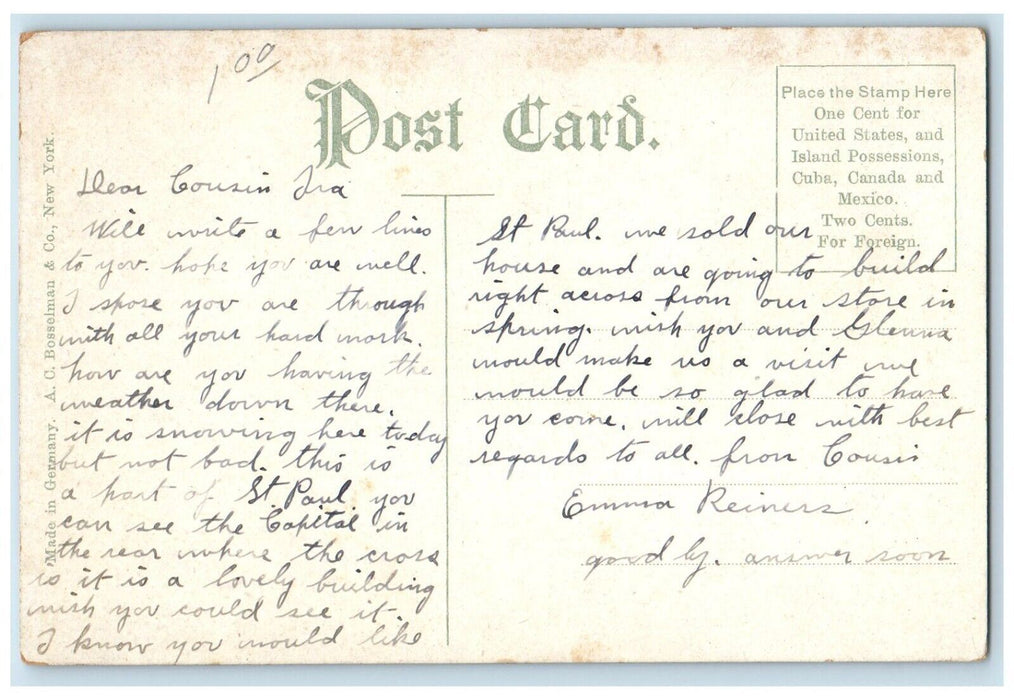 1 00
Post Card.
Place the Stamp Here
One Cent for
United States, and
Island Possessions,
Cuba, Canada and
Mexico.
Two Cents.
For Foreign.
Made in Germany. A. C. Bosselman & Co., New York.
Dear Cousin Ira
Will write a few lines
to you. hope you are well.
I spose you are through
with all your hard work.
how are you having the
weather down there.
it is snowing here today
but not bad. this is
a part of St Paul you
can see the Capital in
the rear where the cross
is it is a lovely building
wish you could see it.
I know you would like
St Paul. we sold our
house and are going to build
right across from our store in
spring. wish you and Glenna
would make us a visit we
would be so glad to have
you come. will close with best
regards to all. from Cousin
Emma Reiners
good by. answer soon